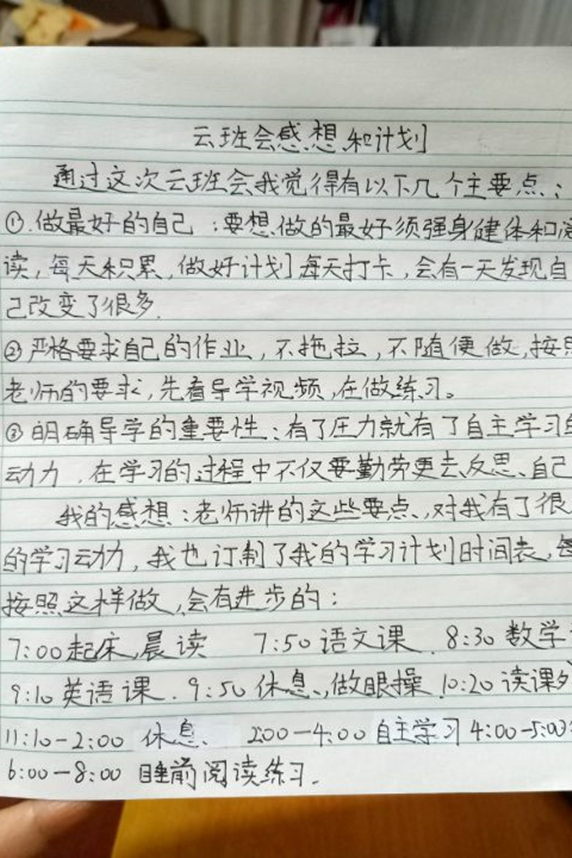 云班会感想和计划
通过这次云班会我觉得有以下几个主要点:
①.做最好的自己:要想做的最好须强身健体和
读,每天积累,做好计划每天打卡,会有一天发现自
己改变了很多.
②严格要求自己的作业,不拖拉,不随便做,按照
老师的要求,先看导学视频,在做练习。
③明确导学的重要性:有了压力就有了自主学习的
动力.在学习的过程中不仅要勤劳更去反思、自己
我的感想:老师讲的这些要点、,对我有了很
的学习动力,我也订制了我的学习计划时间表,每
按照这样做,会有进步的:
7:00起床,晨读 7:50语文课.8:30数学
9:10英语课.9:50休息、,做眼操.10:20读课外
11:10-2:00 休息、 2:00-4:00自主学习4:00-5:00
6:00-8:00 睡前阅读练习.